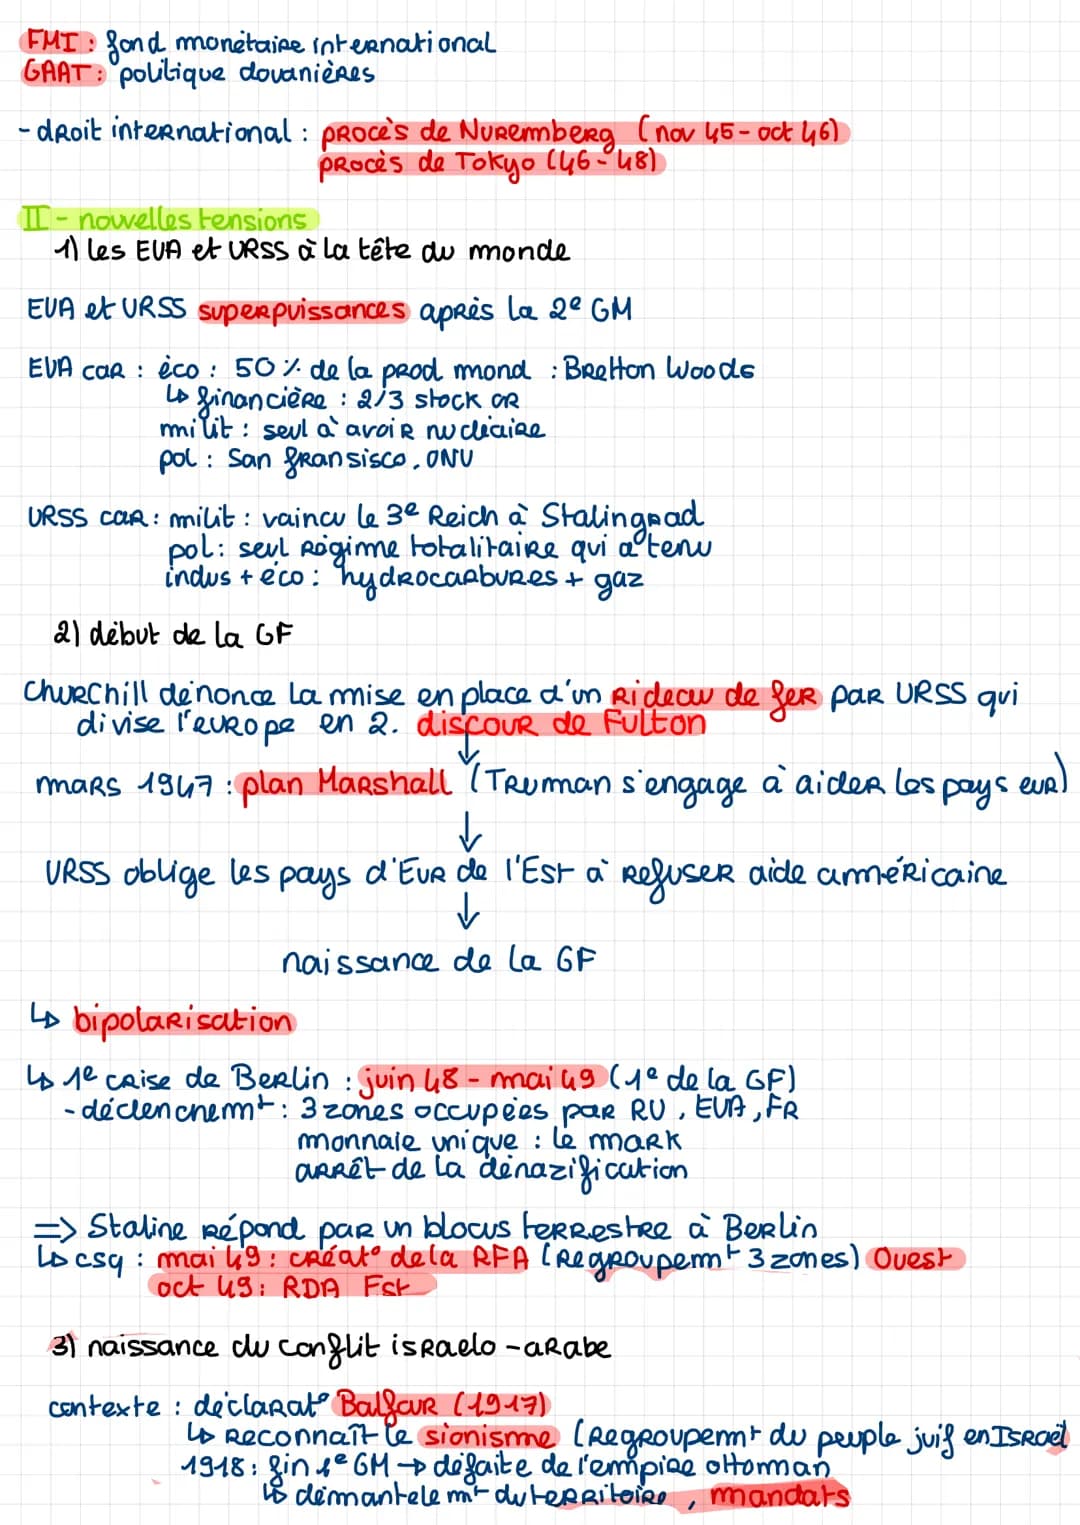 FMI : fond monétaire international
GAAT : politique douanières
- droit international : procès de Nuremberg (nov 45 - oct 46)
procès de Tokyo (46 - 48)
II - nouvelles tensions
1) les EUA et URSS à la tête du monde
EUA et URSS superpuissances après la 2e GM
EUA car : éco : 50 % de la prod mond : Bretton Woods
↳ financière : 2/3 stock or
milit : seul à avoir nucléaire
pol : San Fransisco, ONU
URSS car : milit : vaincu le 3e Reich à Stalingrad
pol : seul régime totalitaire qui a tenu
indus + éco : hydrocarbures + gaz
2) début de la GF
Churchill dénonce la mise en place d'un rideau de fer par URSS qui
divise l'europe en 2. discour de Fulton
↓
mars 1947 : plan Marshall (Truman s'engage à aider les pays eur)
↓
URSS oblige les pays d'Eur de l'Est à refuser aide américaine
↓
naissance de la GF
↳ bipolarisation
↳ 1e crise de Berlin : juin 48 - mai 49 (1e de la GF)
- déclenchemt : 3 zones occupées par RU, EUA, FR
monnaie unique : le mark
arrêt de la dénazification
=> Staline répond par un blocus terrestre à Berlin
↳ csq : mai 49 : créat° de la RFA (regroupemt 3 zones) Ouest
oct 49 : RDA Est
3) naissance du conflit israelo - arabe
contexte : déclarat° Balfour (1917)
↳ reconnaît le sionisme (regroupemt du peuple juif en Israël
1918 : fin 1e GM → défaite de l'empire ottoman
↳ démantelemt du territoire, mandats